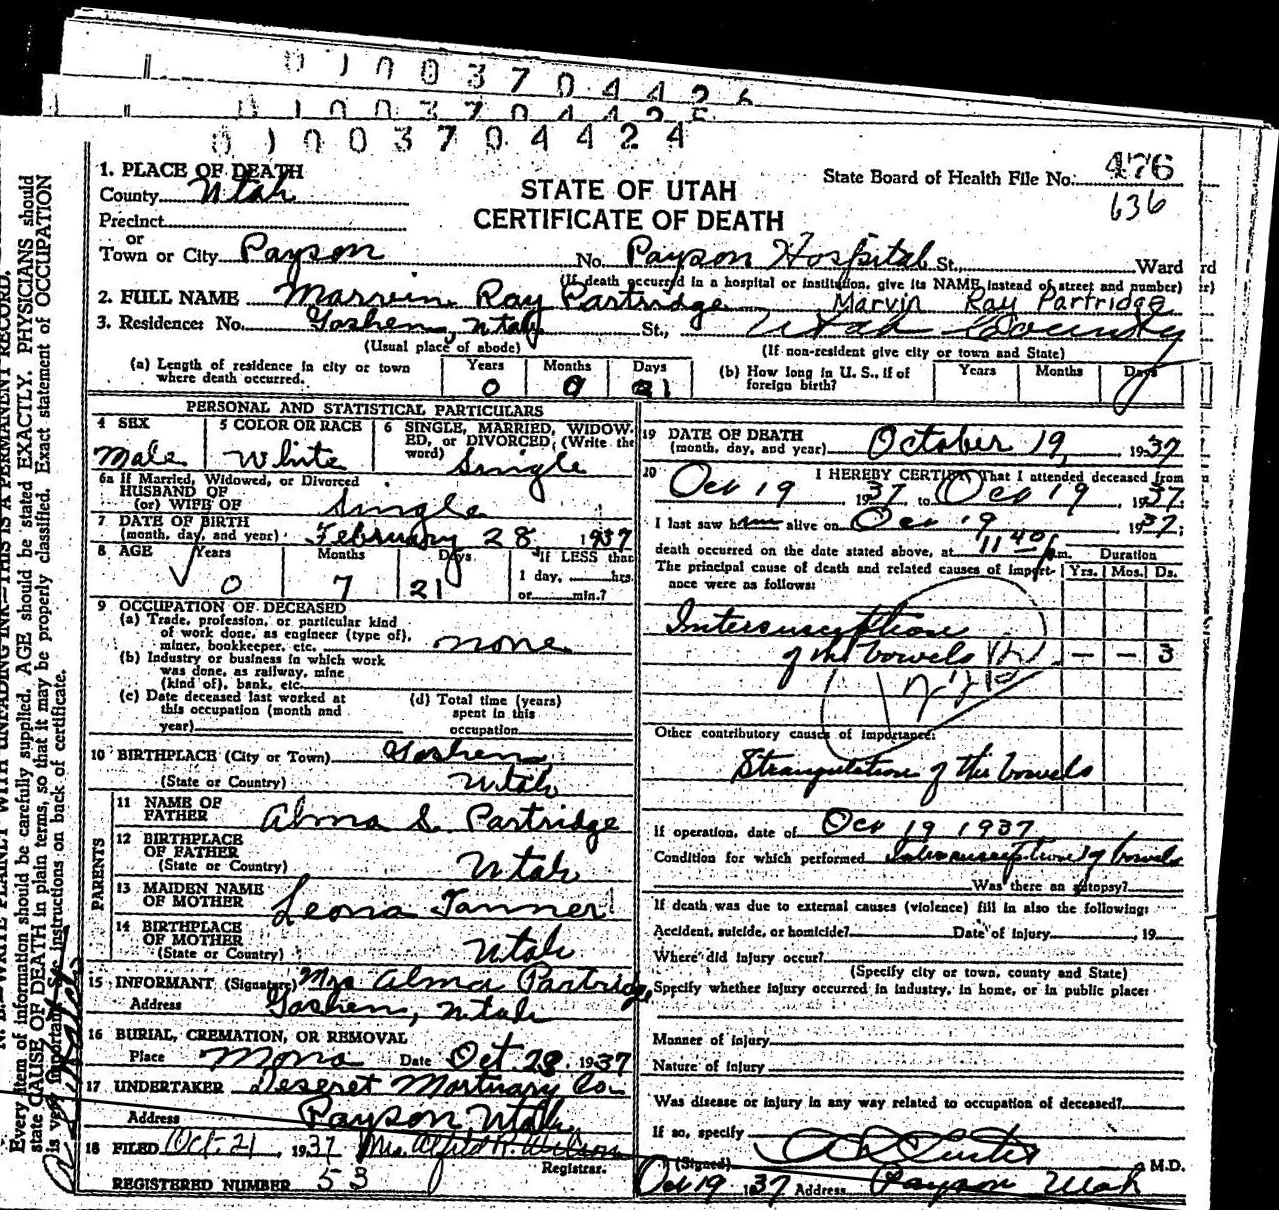 0 1 0 0 3 7 0 4 4 2 6
0 1 0 0 3 7 0 4 4 2 5
0 1 0 0 3 7 0 4 4 2 4
1. PLACE OF DEATH
County Utah
Precinct
or
Town or City Payson
STATE OF UTAH
CERTIFICATE OF DEATH
State Board of Health File No. 476
636
No. Payson Hospital St., Ward
(If death occurred in a hospital or institution, give its NAME instead of street and number)
2. FULL NAME Marvin Ray Partridge Marvin Ray Partridge
3. Residence: No. Goshen, Utah St., Utah County
(Usual place of abode) (If non-resident give city or town and State)
(a) Length of residence in city or town where death occurred. Years 0 Months Days 21
(b) How long in U. S., if of foreign birth? Years Months Days
PERSONAL AND STATISTICAL PARTICULARS
4 SEX Male
5 COLOR OR RACE White
6 SINGLE, MARRIED, WIDOWED, or DIVORCED, (Write the word) Single
6a If Married, Widowed, or Divorced
HUSBAND OF
(or) WIFE OF Single
7 DATE OF BIRTH
(month, day, and year) February 28 1937
8 AGE Years 0 Months 7 Days 21 If LESS than
1 day, hrs.
or min.?
9 OCCUPATION OF DECEASED
(a) Trade, profession, or particular kind
of work done, as engineer (type of),
miner, bookkeeper, etc. none
(b) Industry or business in which work
was done, as railway, mine
(kind of), bank, etc.
(c) Date deceased last worked at
this occupation (month and
year)
(d) Total time (years)
spent in this
occupation
10 BIRTHPLACE (City or Town) Goshen
(State or Country) Utah
PARENTS
11 NAME OF
FATHER Alma S. Partridge
12 BIRTHPLACE
OF FATHER
(State or Country) Utah
13 MAIDEN NAME
OF MOTHER Leona Tanner
14 BIRTHPLACE
OF MOTHER
(State or Country) Utah
15 INFORMANT (Signature) Mrs Alma Partridge
Address Goshen, Utah
16 BURIAL, CREMATION, OR REMOVAL
Place Mona Date Oct. 23 1937
17 UNDERTAKER Deseret Mortuary Co
Address Payson, Utah
18 FILED Oct. 21 1937 Mrs. Alfred R. Wilson
Registrar.
REGISTERED NUMBER 53
19 DATE OF DEATH
(month, day, and year) October 19, 1937
20 I HEREBY CERTIFY, That I attended deceased from
Oct 19 1937 to Oct 19 1937
I last saw him alive on Oct 19 1937;
death occurred on the date stated above, at 11 40 m. Duration
The principal cause of death and related causes of importance were as follows: Yrs. Mos. Ds.
Intersusception
of the bowels — — 3
Other contributory causes of importance:
Strangulation of the bowels
If operation, date of Oct 19 1937
Condition for which performed Intersusception of bowels
Was there an autopsy?
If death was due to external causes (violence) fill in also the following:
Accident, suicide, or homicide? Date of injury , 19
Where did injury occur?
(Specify city or town, county and State)
Specify whether injury occurred in industry, in home, or in public place:
Manner of injury
Nature of injury
Was disease or injury in any way related to occupation of deceased?
If so, specify
(Signed) M.D.
Oct 19 1937 Address Payson Utah
N. B.—WRITE PLAINLY WITH UNFADING INK—THIS IS A PERMANENT RECORD.
Every item of information should be carefully supplied. AGE should be stated EXACTLY. PHYSICIANS should
state CAUSE OF DEATH in plain terms, so that it may be properly classified. Exact statement of OCCUPATION
is very important. See instructions on back of certificate.